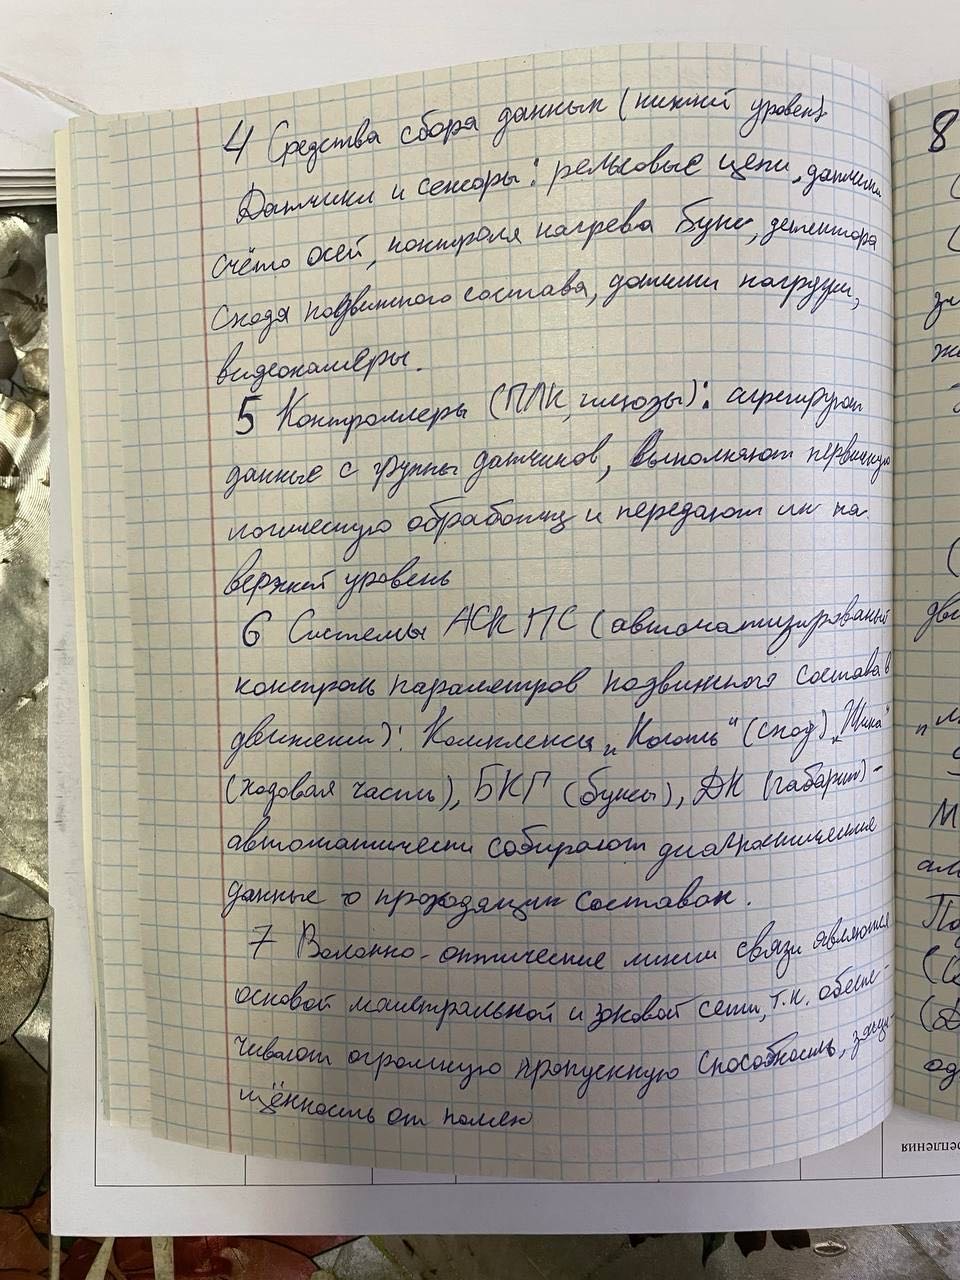 4 Средства сбора данных (нижний уровень)
Датчики и сенсоры: рельсовые цепи, датчики
счёта осей, контроля нагрева букс, детектора
схода подвижного состава, датчики нагрузки,
видеокамеры.
5 Контроллеры (ПЛК, шлюзы): агрегируют
данные с группы датчиков, выполняют первичную
логическую обработку и передают их на
верхний уровень
6 Системы АСК ПС (автоматизированый
контроль параметров подвижного состава в
движении): Комплексы „Коготь“ (сход) „Шина“
(ходовая часть), БКГ (буксы), ДК (габарит) -
автоматически собирают диагностические
данные о проходящих составах.
7 Волокно-оптические линии связи являются
основой магистральной и зоковой сети, т.к. обеспе-
чивают огромную пропускную способность, защи-
щённость от помех
8
репления